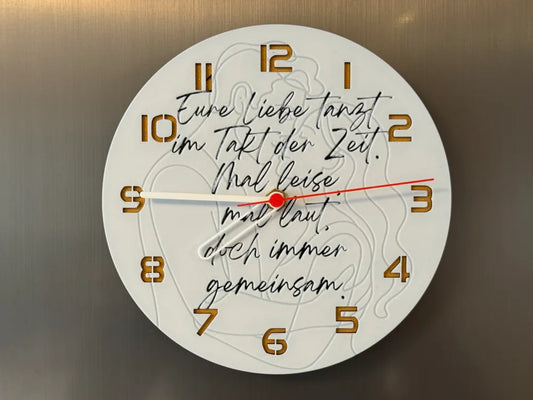 12
11
1
Eure Liebe tanzt
10
2
im Takt der Zeit.
Mal leise,
9
3
mal laut,
doch immer
8
4
gemeinsam.
7
5
6